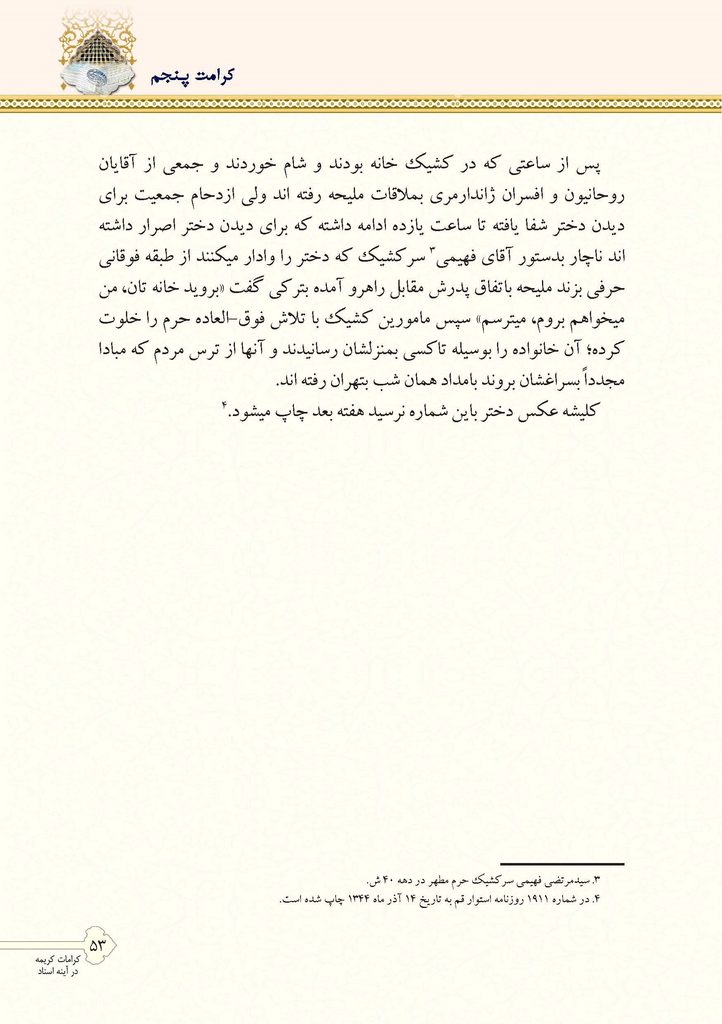 کرامت پنجم
پس از ساعتی که در کشیک خانه بودند و شام خوردند و جمعی از آقایان
روحانیون و افسران ژاندارمری بملاقات ملیحه رفته اند ولی ازدحام جمعیت برای
دیدن دختر شفا یافته تا ساعت یازده ادامه داشته که برای دیدن دختر اصرار داشته
اند ناچار بدستور آقای فهیمی۳ سرکشیک که دختر را وادار میکنند از طبقه فوقانی
حرفی بزند ملیحه باتفاق پدرش مقابل راهرو آمده بترکی گفت «بروید خانه تان، من
میخواهم بروم، میترسم» سپس مامورین کشیک با تلاش فوق-العاده حرم را خلوت
کرده؛ آن خانواده را بوسیله تاکسی بمنزلشان رسانیدند و آنها از ترس مردم که مبادا
مجدداً بسراغشان بروند بامداد همان شب بتهران رفته اند.
کلیشه عکس دختر باین شماره نرسید هفته بعد چاپ میشود.۴
۳. سیدمرتضی فهیمی سرکشیک حرم مطهر در دهه ۴۰ ش.
۴. در شماره ۱۹۱۱ روزنامه استوار قم به تاریخ ۱۴ آذر ماه ۱۳۴۴ چاپ شده است.
۵۳
کرامات کریمه
در آینه اسناد